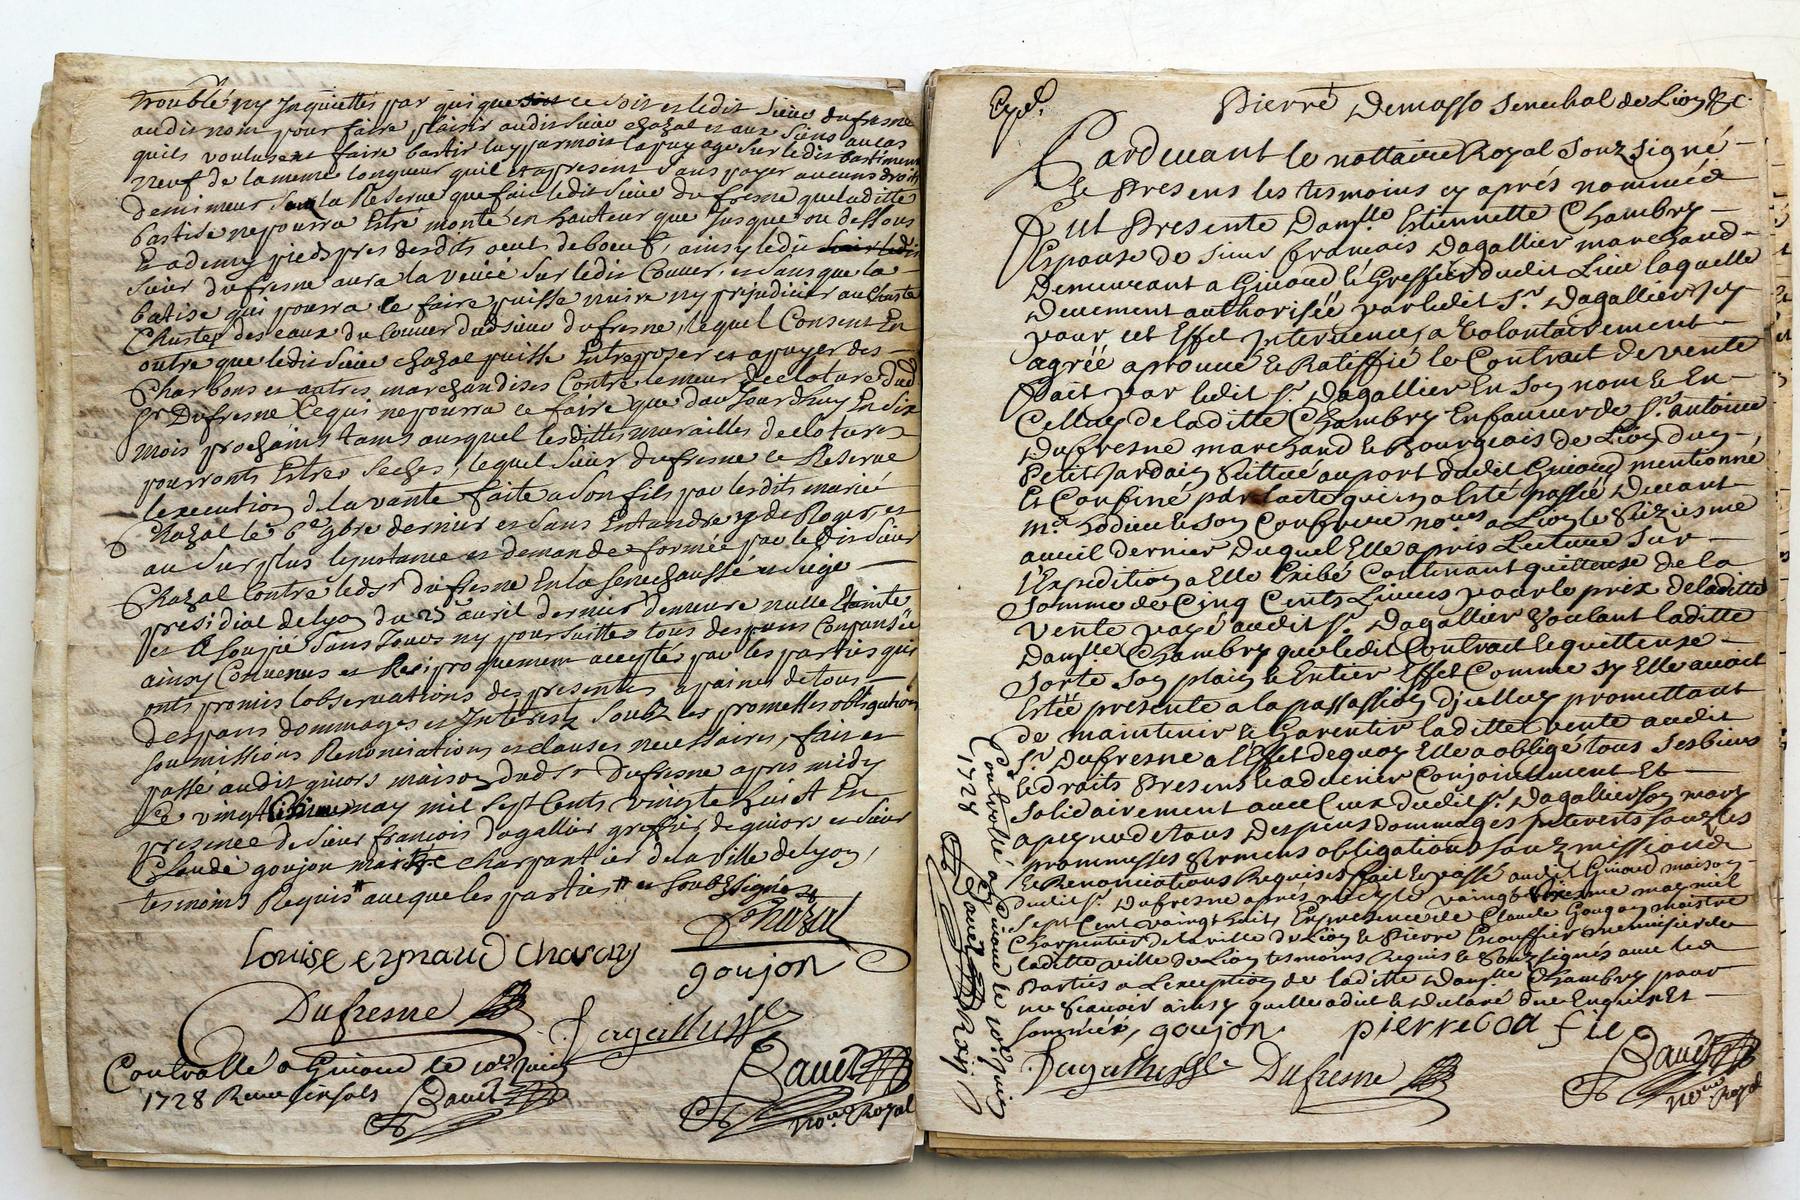 troublé ny Inquiettés par qui que ce soit et ledit sieur dufresne
audit nom pour faire plaisir audit sieur chazal et aux siens au cas
quils voulussent faire bastir luy permois lapuyage sur ledit bastiment
neuf de la meme longueur quil est apresent sans payer aucuns droits
demi meur sous la Reserve que fait ledit sieur du fresne que laditte
bastise ne pourra Estre monté en hauteur que Jusque au dessous
Et a demy pied pres desdits oeuls de boeuf, ainsy ledit
sieur dufresne aura la veüe sur ledit Couver, et sans que la
batise qui pourra ce faire puisse nuire ny prejudicier au Chuste
Chustes des eaux du Couver dud sieur dufresne, lequel Consent En
outre que ledit sieur chazal puisse Entreposer et apuyer des
Charbons et autres marchandises Contre le meur de cloture dud
Sr Dufresne Ce qui ne pourra ce faire que dau Jourdhuy En six
mois prochains tams auquel lesdittes murailles de clotures
pourronts Estres seches, lequel sieur dufresne ce Reserve
lexecution de la vante faite a son fils par lesdits mariés
Chazal le 6e 9bre dernier et sans Entandre y de Roger, et
au surplus lynstance et demande formée par le dit sieur
Chazal Contre ledsr dufresne En la senechaussé et siege
presidial de lyon du 23 avril dernier demeure nulle Etainte
et assoupie sans Jours ny poursuittes tous despans Compansés
ainsy Convenus et Resiproquement accepté par les parties qui
onts promis lobservations des presentes a paine de tous
despans dommages et Interests soubz les promesses obligations
soumissions Renonciations et clauses necessaires, fait et
passé audit givors maison dudsr Dufresne apres midy
Le vingt may mil sept Cents vingte huict En
presence de sieur francois Dagallier greffier de givors et sieur
Claude goujon maitre charpantier de la ville de lyon,
tesmoins Requis avec que les parties et soubzsignés
Chazal
Louise eynaud Chazal
goujon
Dufresne
Dagallier
Controllé a Givord le 10e Juin
1728 Receu six sols Bauet
Bauet
nore Royal
Exp.
Pierre Demasso Senechal de Lion &c.
Pardevant le nottaire Royal Souzsigné
Et Presens les tesmoins cy aprés nommés
fut Presente Damslle Estiennette Chambry
Espouse de sieur francois Dagallier marchand
Demeurant a Givord & Greffier dudit Lieu laquelle
Deuement authorisée par ledit Sr Dagallier Icy
pour cet Effet Intervenu, a Volontairement
agréé aprouvé & Ratiffié le Contrait de vente
Fait par ledit Sr Dagallier En son nom & En
Celluy de laditte Chambry En faveur de Sr antoine
Dufresne marchand & Bourgeois de Lion dun
Petit Jardain Sittué au port dudit Givord mentionné
Et Confiné par lacte qui en a Esté passé Devant
me hodieu & son Confrere nores a Lion le Seziesme
avril dernier Duquel Elle a pris Lecture Sur
l'Expedition a Elle Exibé Contenant quittense de la
Somme de Cinq Cents Livres pour le prix de laditte
vente payé audit Sr Dagallier Voulant laditte
Damslle Chambry que ledit Contrait & quittense
Sorte son plain & Entier Effet Comme sy Elle avoit
Estée presente a la passassion D'iceluy promettant
de maintenir & Garentir laditte vente audit
Sr Dufresne a l'Effet de quoy Elle a oblige tous ses biens
& droits Presens & advenir Conjointement Et
Solidairement avec Ceux dudit Sr Dagallier son mary
a peyne de tous Despens dommages Interests sous les
prommesses sermens obligations Souzmissions
& Renonciations Requises fait & passé audit Givord maison
dudit Sr Dufresne aprés midy le may mil
sept Cent vaingt huit En presence de Claude Goujon maistre
Charpentier de la ville de Lion & Pierre menuisier de
laditte ville de Lion tesmoins Requis & Souzsignés avec les
Parties a L'exeption de laditte Damslle Chambry pour
ne scavoir ainsy quelle a dit & declaré due Enquis Et
sommée, goujon pierre
Dagallier Dufresne
Bauet
nore Royal
Controllé a Givord le 10e Juin
1728
Bauet